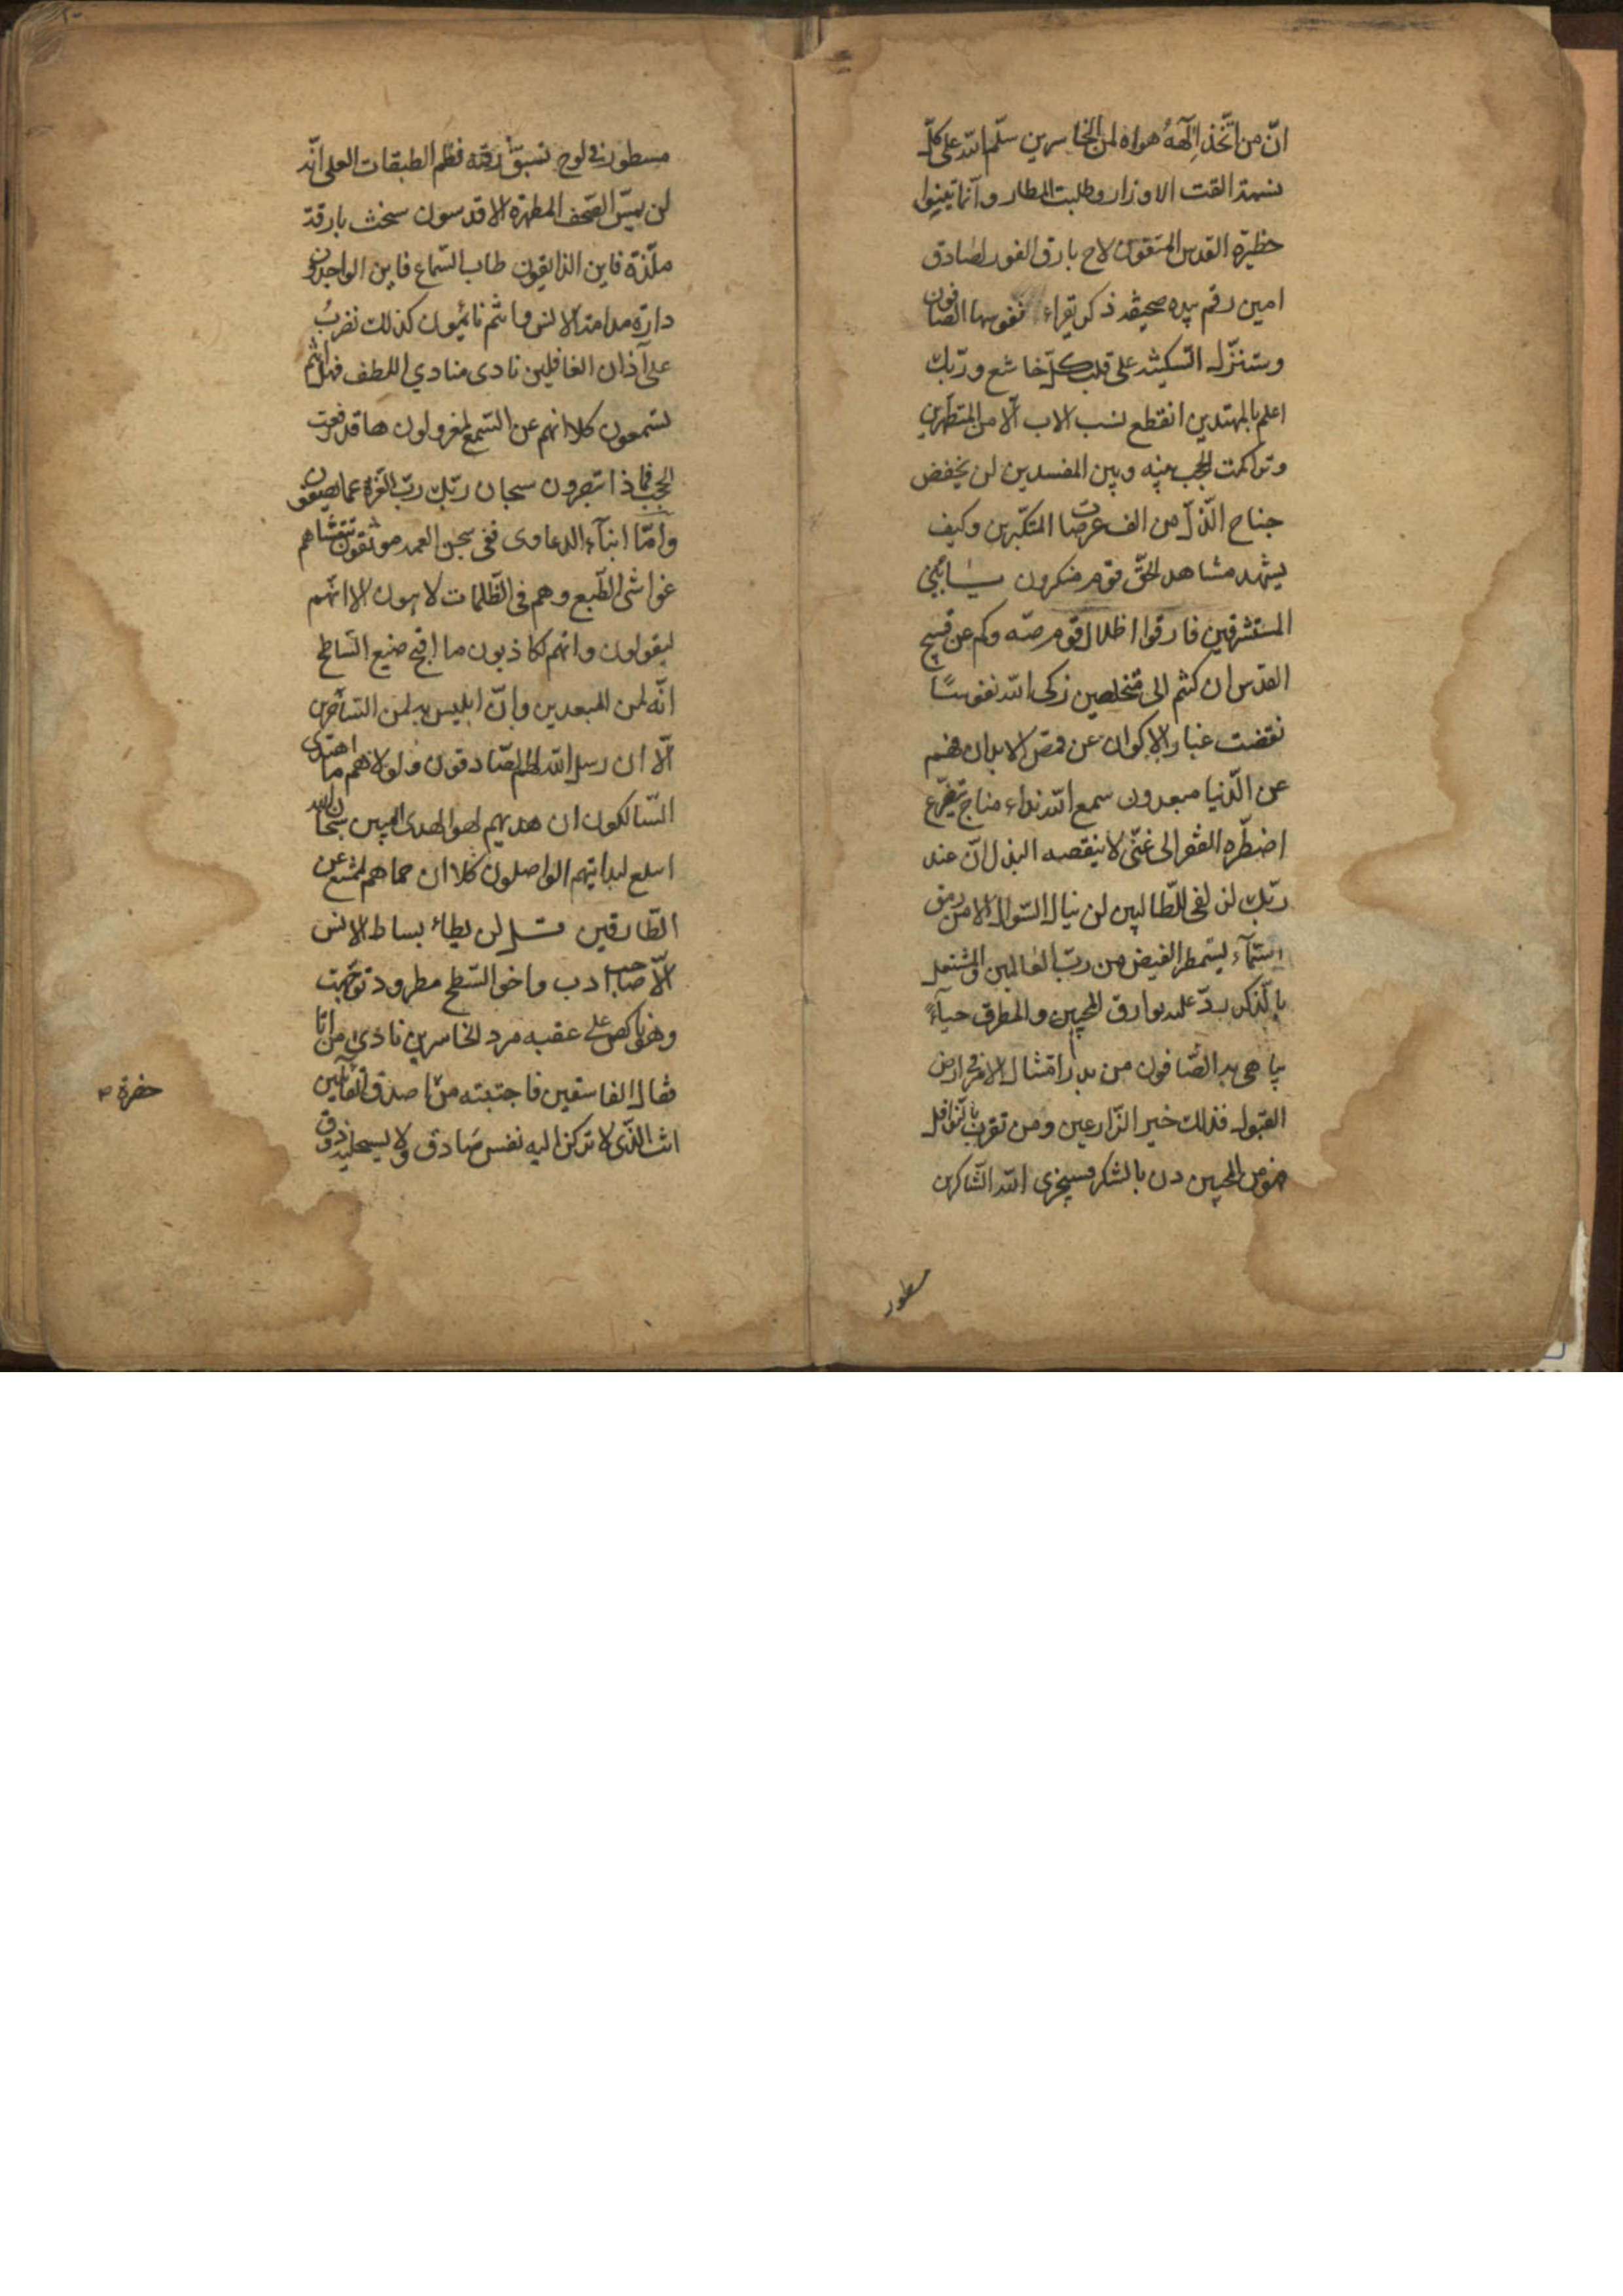 انّ من اتّخذ الٓههُ هواه لمن الخاسرين سلّم الله على كلّ
نسمة القت الاوزار وطلبت المطار وانّما تبتنوا
حظيرة القدس المتقون لاح بارق الفور لصادق
امين رقم بيده صحيفة ذكر يقراء نقوسها الصافون
وستنزل السكينة على قلب كلّ خاشع وربّك
اعلم بالمهتدين انقطع نسب الاب الّا من المتطهرين
وتراكمت الحجب بينه وبين المفسدين لن يخفض
جناح الذّلّ من الف عرصات المتكبّرين وكيف
يشهد مشاهد الحقّ قوم منكرون
المستشرقين فارقوا اظلال قوم صمّ وكم عن فسيح
القدس ان كنتم الى متخلصين زكى الله نفوسًا
نفضت غبار الاكوان عن قمص الابدان فهم
عن الدّنيا مبعدون سمع الله نداء مناج تضرّع
اضطرّه الفقر الى غنىّ لا ينقصه البذل انّ عند
ربّك لزلفى للطّالبين لن ينال السّوال الا من رمق
السّماء يستمطر الفيض من ربّ العالمين والمشتعل
بالذّكر بدّ عليه بوارق المحبين والمطرق حياءً
يباهى به الصّافون من بذر امتثال الامر فى ارض
القبول فذلك خير الزّارعين ومن تقرب بالنّوافل
فهو من المحبين دن بالشكر فسيجزى الله الشّاكرين
مسطور
مسطور فى لوح نسبق رقمه نظم الطبقات العلى انّه
لن يمسّ الصّحف المطهرة الا قدسون سنحت بارقة
ملذّة فاين الذايقون طاب السّماع فاين الواجدون
دارة مدامة الانس وانتم نائمون كذلك نضربُ
على آذان الغافلين نادى منادي اللطف فهل انتم
تسمعون كلا انهم عن السّمع لمعزولون ها قد رفعت
الحجب فماذا تبصرون سبحان ربّك ربّ العزّة عما يصفون
وامّا ابناء الدعاوى ففى سجن العمد موثقون تتغشاهم
غواشى الطّبع وهم فى الظّلمات لاهون الا انّهم
ليقولون وانهم لكاذبون ما اقبح صنيع الشاطح
انّه لمن المبعدين وانّ ابليس به لمن السّاخرين
الّا ان رسل الله لهم الصّادقون ولولاهم ما اهتدى
السّالكون ان هديهم لهو الهدى المبين سبحان الله
اسلع لبداتيهم الواصلون كلا ان حماهم لممتنع عن
الطّارقين قل لن يطاء بساط الانس
الّا صاحب ادب واخو الشّطح مطرود توجّهت
وهو ناكص على عقبه مرد الخاسرين نادى من اتا
فقال الفاسقين فاجتبته من اصدق القائلين
انت الذّى لا تركن اليه نفس صادق ولا يستحليه ذوق
حضرة